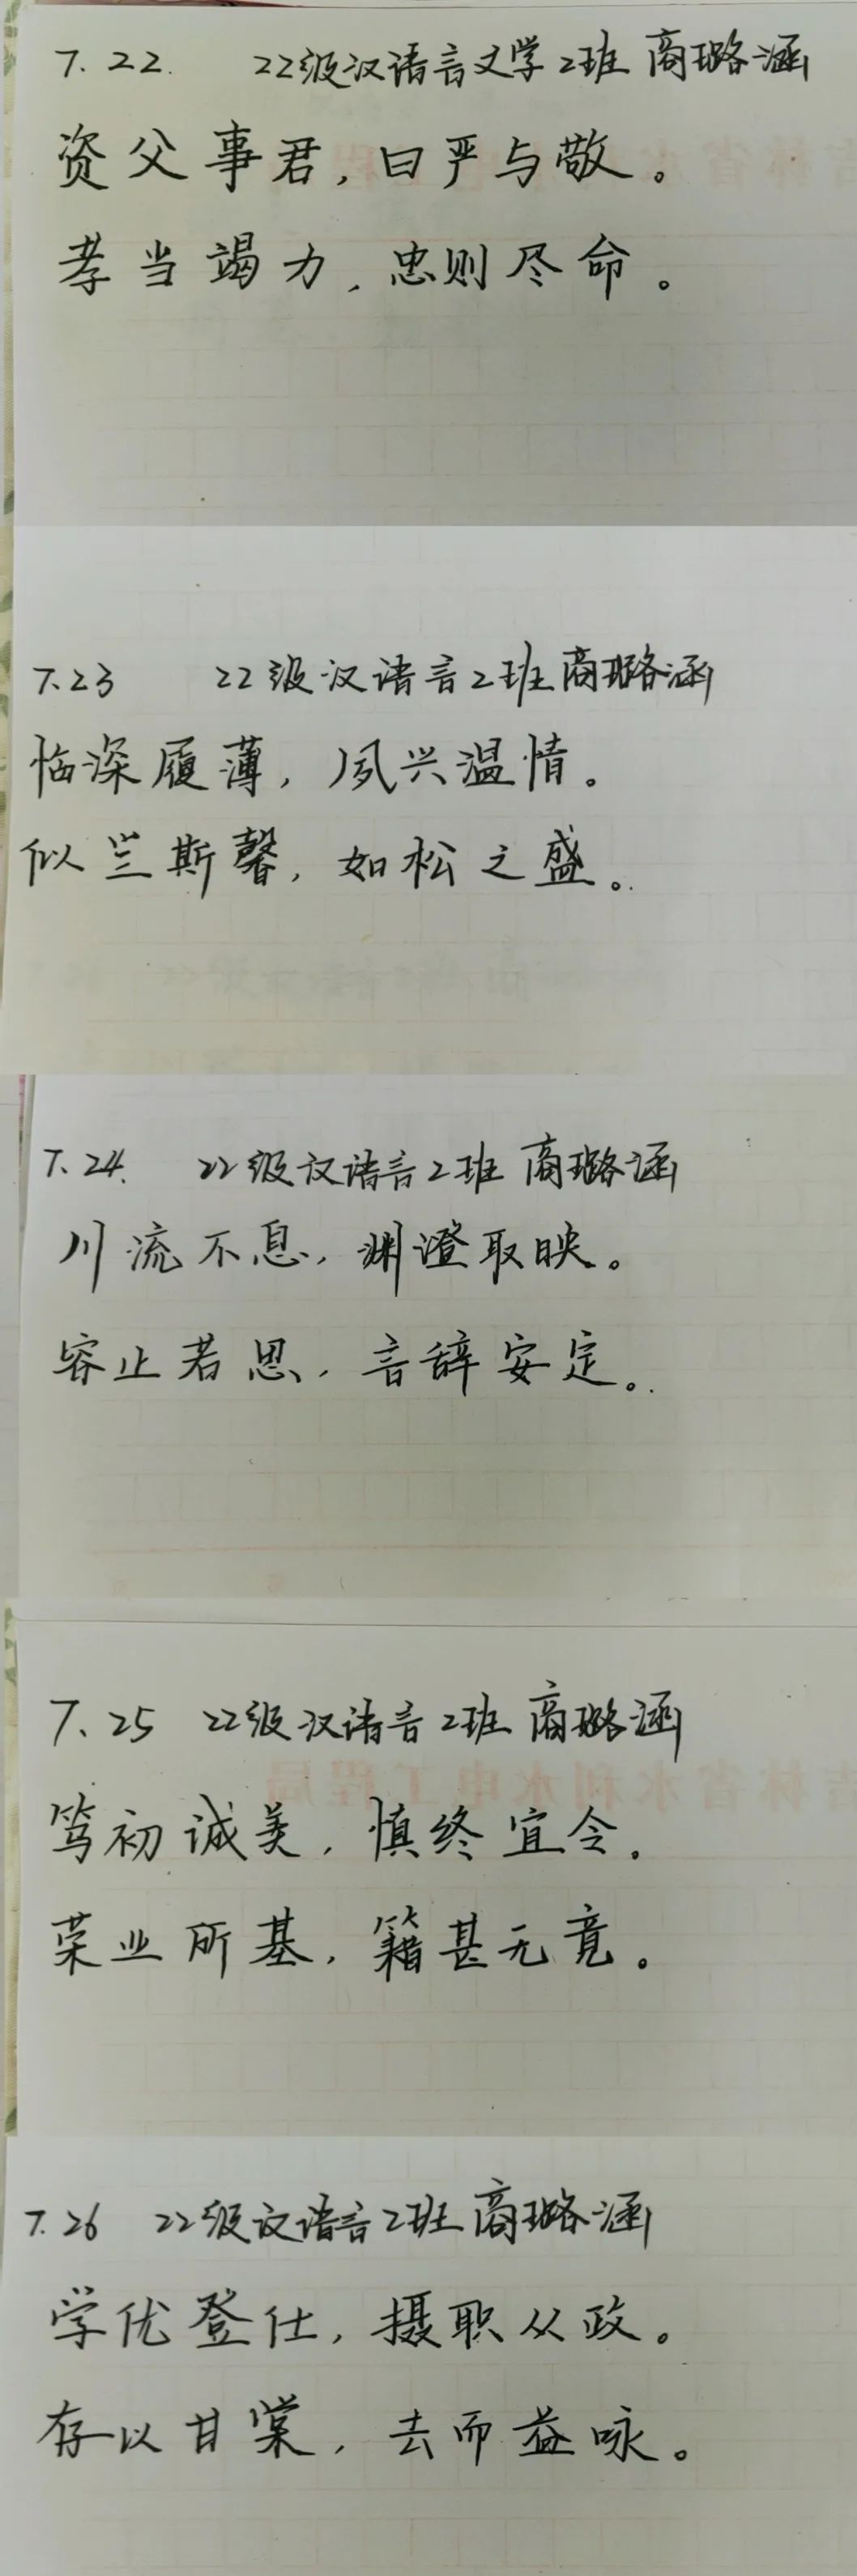 7.22. 22级汉语言文学2班 商璐涵
资父事君,曰严与敬。
孝当竭力,忠则尽命。
7.23 22级汉语言2班商璐涵
临深履薄,夙兴温情。
似兰斯馨,如松之盛。
7.24. 22级汉语言2班 商璐涵
川流不息,渊澄取映。
容止若思,言辞安定。
7.25 22级汉语言2班 商璐涵
吉林省水利水电工程局
笃初诚美,慎终宜令。
荣业所基,籍甚无竟。
7.26 22级汉语言2班 商璐涵
学优登仕,摄职从政。
存以甘棠,去而益咏。